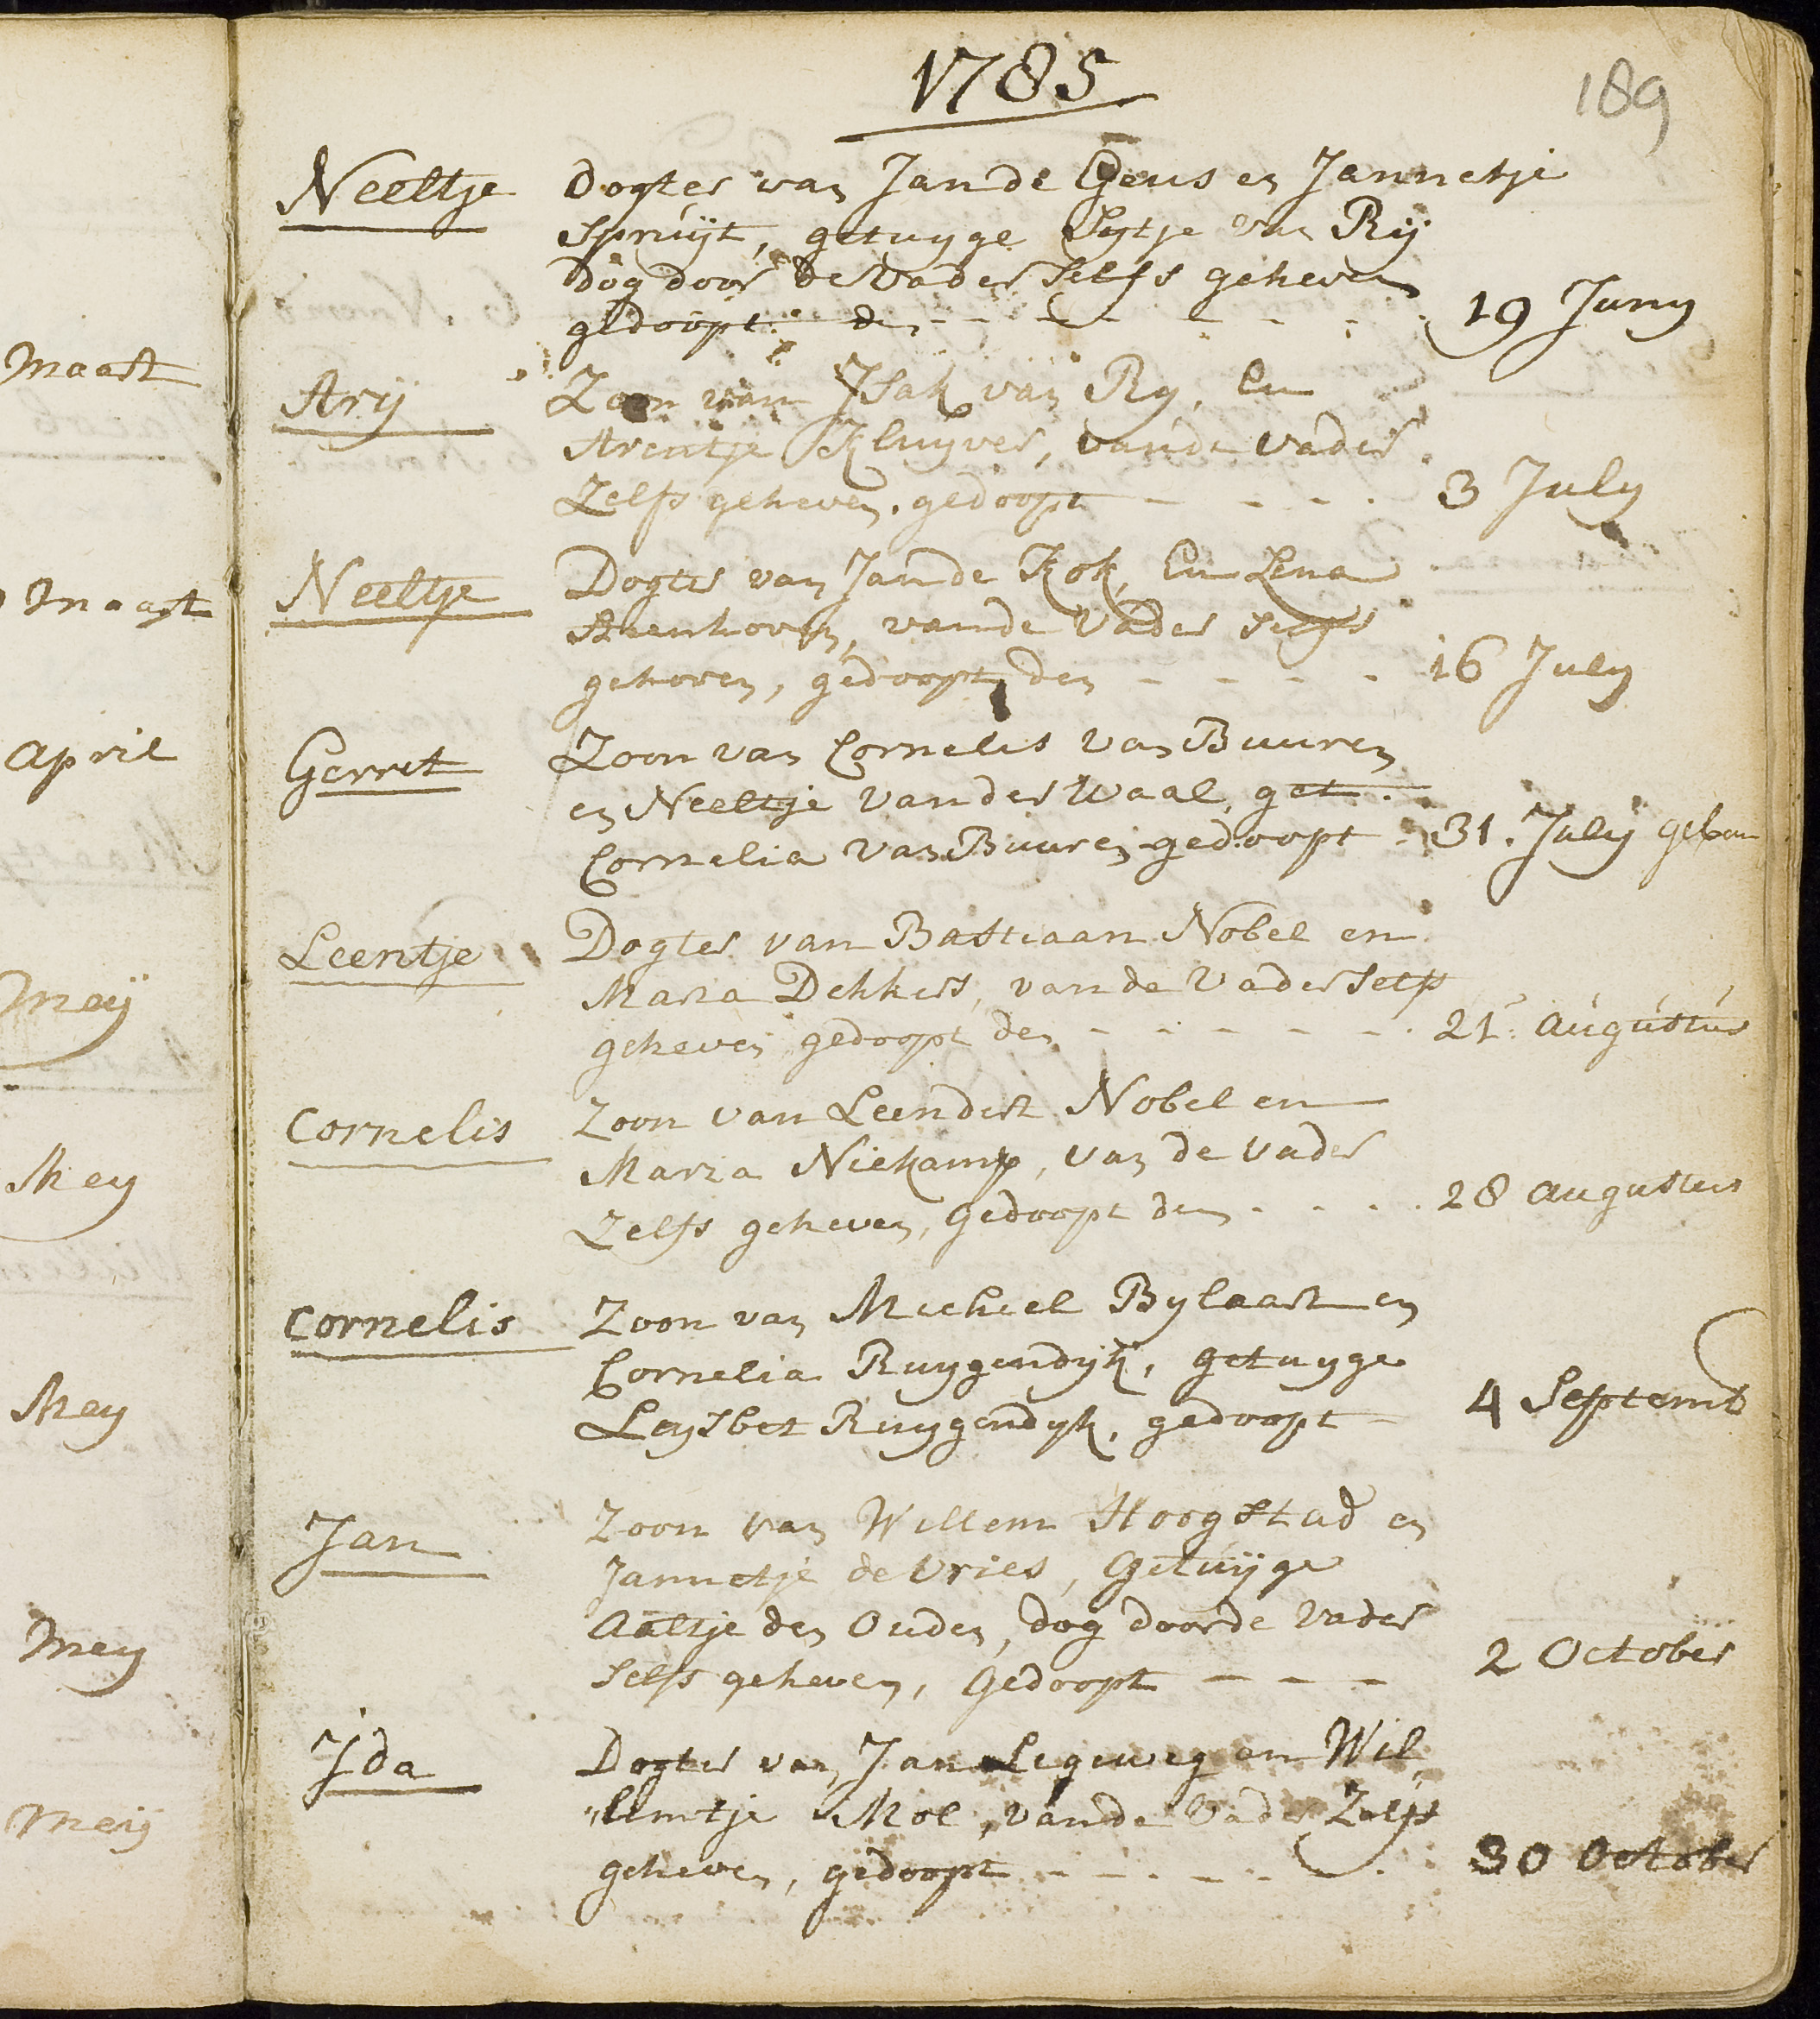 1785
189
Neeltje Dogter van Jan de Geus en Jannetje
Spruijt, getuyge Sytje van Rij
dog door de Vader selfs geheven
gedoopt den - - - - - - - 19 Juny
Arij Zoon van Isak van Ry, En
Arentje Kluyver, van de vader
Zelfs geheven. gedoopt - - - - 3 July
Neeltje Dogter van Jan de Kok, En Lena
vande Vader selfs
gehoven, gedoopt den - - - - 16 July
Gerret Zoon van Cornelis van Buuren
en Neeltje van der Waal, get.
Cornelia van Buuren gedoopt 31. Julij
Leentje Dogter van Bastiaan Nobel en
Maria Dekkers, van de Vader Self
geheven gedoopt den - - - - - - 21: augustus
Cornelis Zoon van Leendert Nobel en
Maria Niekamp, van de Vader
Zelfs geheven, Gedoopt den - - - - 28 augustus
Cornelis Zoon van Mechiel Bylaart en
Cornelia Ruygendijk, getuyge
Leysbet Ruygendyk, gedoopt - 4 Septemb
Jan Zoon van Willem Hoogstad en
Jannetje de Vries, Getuijge
Aaltje den Ouden, dog door de Vader
selfs geheven, Gedoopt - - - 2 October
Ida Dogter van Jan Legeweg en Wil„
„lemtje Mol, van de Vader Zelfs
geheven, gedoopt - - - - - 30 October
maart
maart
april
meij
Mey
Mey
mey
meij